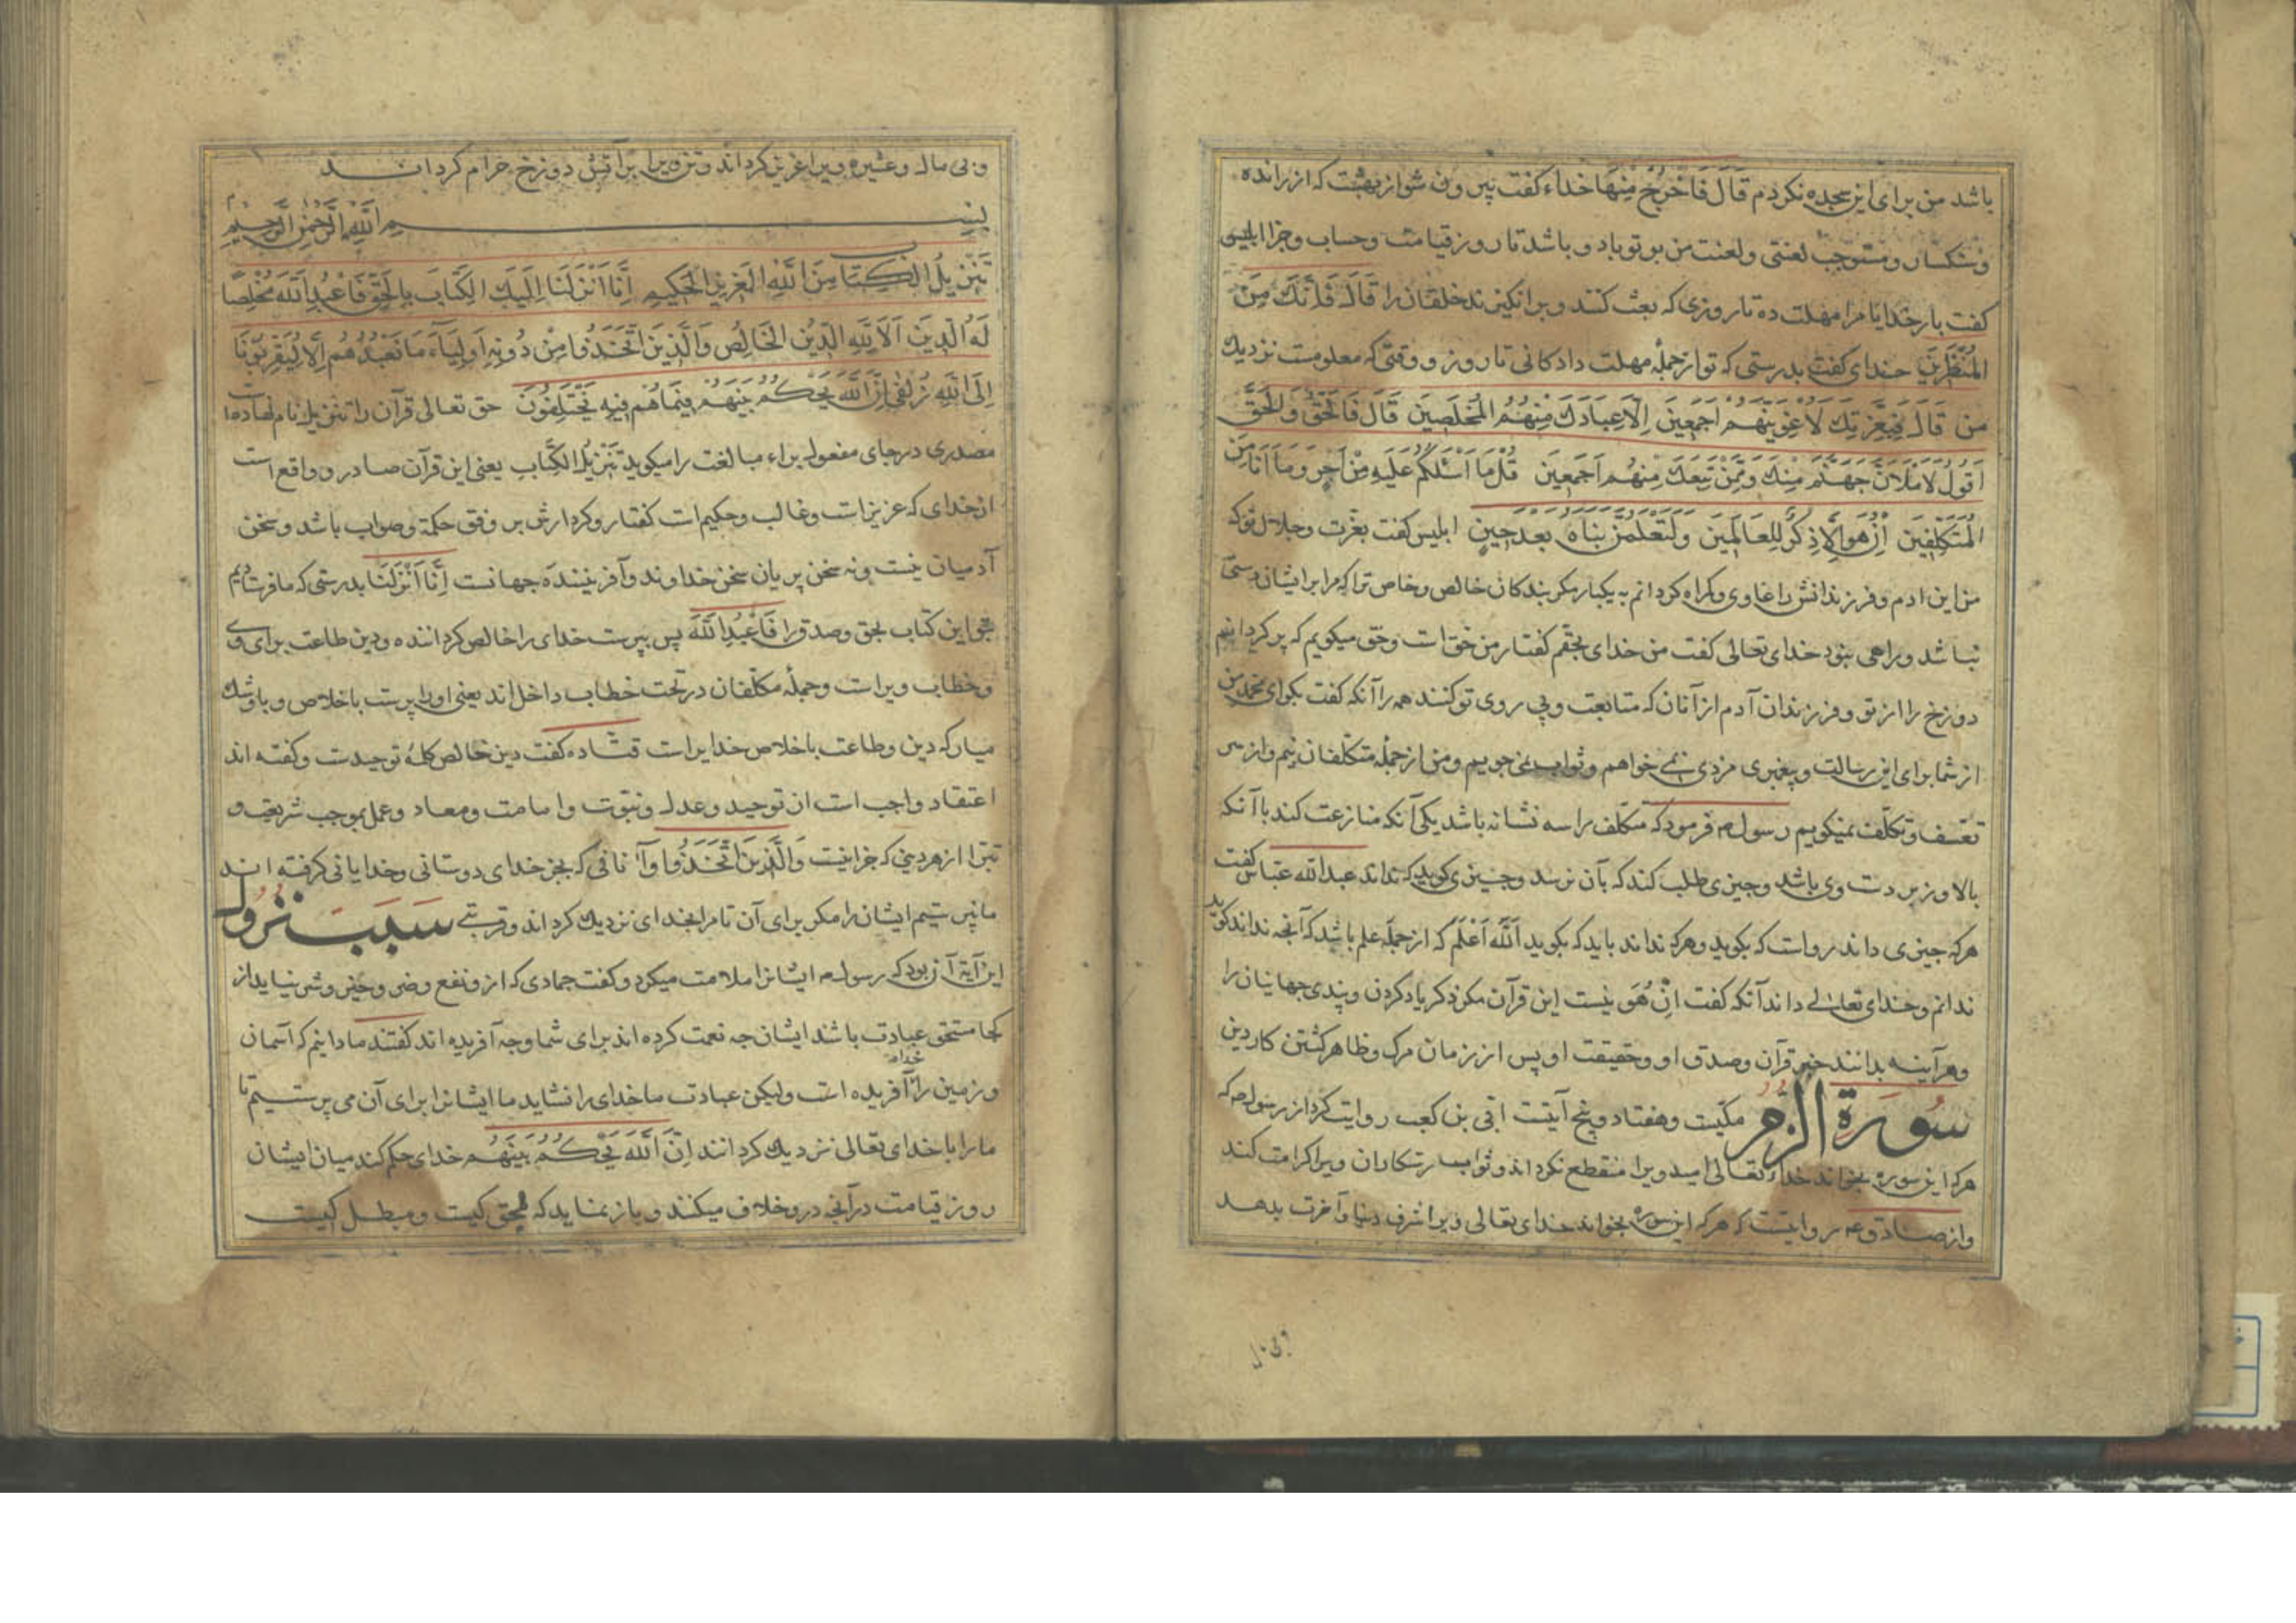 باشد من برای این سجده نکردم قَالَ فَاخْرُجْ مِنْهَا خداء کفت بیرون شو از بهشت که از رانده
و سنکسار و مستوجب لعنتی و لعنت من بر تو باد و باشد تا روز قیامت و حساب و جزا ابلیس
کفت بار خدایا مرا مهلت ده تا روزی که بعث کنند و برانکیزند خلقان را قَالَ فَاِنَّكَ مِنَ
المُنْظَرِینَ خدای کفت بدرستی که تو از جملهٔ مهلت دادکانی تا روز و وقتی که معلومست نزدیك
من قَالَ فَبِعِزَّتِكَ لَاُغْوِیَنَّهُمْ اَجْمَعِینَ اِلَّا عِبَادَكَ مِنْهُمُ المُخْلَصِینَ قَالَ فَالْحَقُّ وَالْحَقَّ
اَقُولُ لَاَمْلَاَنَّ جَهَنَّمَ مِنْكَ وَمِمَّنْ تَبِعَكَ مِنْهُمْ اَجْمَعِینَ قُلْ مَا اَسْئَلُكُمْ عَلَیْهِ مِنْ اَجْرٍ وَمَا اَنَا مِنَ
المُتَكَلِّفِینَ اِنْ هُوَ اِلَّا ذِكْرٌ لِلْعَالَمِینَ وَلَتَعْلَمُنَّ نَبَاَهُ بَعْدَ حِینٍ ابلیس کفت بعزت و جلال تو که
من این ادم و فرزندانش را غاوی و کمراه کردانم به یکبار مکر بندکان خالص و خاص ترا که مرا بر ایشان دستی
نباشد و راهی نبود خدای تعالی کفت من خدای بحقم کفتار من حق است و حق میکویم که پر کردانم
دوزخ را از تو و فرزندان آدم از آنان که متابعت و پی روی تو کنند همه را آنکه کفت بکو ای محمد من
از شما برای این رسالت و پیغمبری مزدی نمی خواهم و ثواب نمی جویم و من از جملهٔ متکلفان نیم و از سر
تعسف و تکلف نمیکویم رسول ص فرمود که متکلف را سه نشانه باشد یکی آنکه منازعت کند با آنکه
بالا و زبر دست وی باشد و چیزی طلب کند که بآن نرسد و چیزی کوید که نداند عبدالله عباس کفت
هرکه چیزی داند رواست که بکوید و هرکه نداند باید که بکوید اَللّٰهُ اَعْلَمُ که از جمله علم باشد که آنچه نداند کوید
ندانم و خدای تعالی داند آنکه کفت اِنْ هُوَ نیست این قرآن مکر ذکر یاد کردن و پندی جهانیان را
و هرآینه بدانند خبر قرآن و صدق او و حقیقت او پس از زمان مرک و ظاهر کشتن کار دین
سُورَة الزُّمَر مکّیت و هفتاد و پنج آیتست ابی بن کعب روایت کرد از رسول ص که
هرکه این سوره بخواند خداء تعالی امید ویرا منقطع نکرداند و ثواب رستکاران ویرا کرامت کند
و از صادق ع روایتست که هرکه این سوره بخواند خدای تعالی ویرا شرف دنیا و آخرت بدهد
و بی مال و عشیره ویرا عزیز کرداند و تن ویرا بر آتش دوزخ حرام کرداند
بِسْمِ اللّٰهِ الرَّحْمٰنِ الرَّحِیمِ
تَنْزِیلُ الْكِتَابِ مِنَ اللّٰهِ الْعَزِیزِ الْحَكِیمِ اِنَّا اَنْزَلْنَا اِلَیْكَ الْكِتَابَ بِالْحَقِّ فَاعْبُدِ اللّٰهَ مُخْلِصًا
لَهُ الدِّینَ اَلَا لِلّٰهِ الدِّینُ الْخَالِصُ وَالَّذِینَ اتَّخَذُوا مِنْ دُونِهِ اَوْلِیَآءَ مَا نَعْبُدُهُمْ اِلَّا لِیُقَرِّبُونَا
اِلَی اللّٰهِ زُلْفٰی اِنَّ اللّٰهَ یَحْكُمُ بَیْنَهُمْ فِیمَا هُمْ فِیهِ یَخْتَلِفُونَ حق تعالی قرآن را تنزیل نام نهاده است
مصدری درجای مفعول براء مبالغت را میکوید تَنْزِیلُ الْكِتَابِ یعنی این قرآن صادر و واقع است
از خدای که عزیز است و غالب و حکیم است کفتار و کردارش بر وفق حکمة و صواب باشد و سخن
آدمیان نیست و نه سخن پریان سخن خداوند و آفریننده جهانست اِنَّا اَنْزَلْنَا بدرستی که ما فرستادیم
بتو این کتاب بحق و صدق را فَاعْبُدِ اللّٰهَ پس بپرست خدای را خالص کرداننده و دین طاعت برای وی
و خطاب ویراست و جملهٔ مکلفان در تحت خطاب داخل اند یعنی او را پرست باخلاص و با او شك
میار که دین و طاعت باخلاص خدایراست قتاده کفت دین خالص کلمهٔ توحیدست و کفته اند
اعتقاد واجب است ان توحید و عدل و نبوّت و امامت و معاد و عمل بموجب شریعت و
تبرّا از هر دینی که جز اینست وَالَّذِینَ اتَّخَذُوا و آنانی که بجز خدای دوستانی و خدایانی کرفته اند
ما نپرستیم ایشان را مکر برای آن تا مرا بخدای نزدیك کرداند و قربتی سَبَب نُزُول
این آیة آن بود که رسول ص ایشانرا ملامت میکرد و کفت جمادی که ازو نفع و ضر و خیر و شر نیاید از
کجا مستحق عبادت باشد ایشان چه نعمت کرده اند برای شما و چه آفریده اند کفتند ما دانیم که آسمان
و زمین را خدا آفریده است ولیکن عبادت ما خدای را نشاید ما ایشانرا برای آن می پرستیم تا
ما را با خدای تعالی نزدیك کردانند اِنَّ اللّٰهَ یَحْكُمُ بَیْنَهُمْ خدای حکم کند میان ایشان
روز قیامت در آنچه درو خلاف میکنند و باز نماید که محق کیست و مبطل کیست